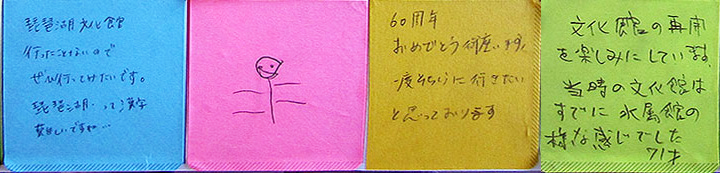 琵琶湖文化館
行ったことないので
ぜひ行ってみたいです。
琵琶湖…って漢字
難しいですね…
60周年
おめでとう御座います。
一度そちらに行きたい
と思っております
文化館の再開
を楽しみにしています。
当時の文化館は
すでに水属館の
様な感じでした
71才